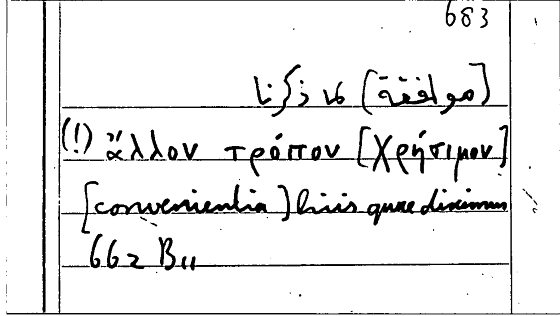 683
[موافقة] لما ذكرنا
(!) ἄλλον τρόπον [χρήσιμον]
[convenientia] hiis quae diximus
662 B11